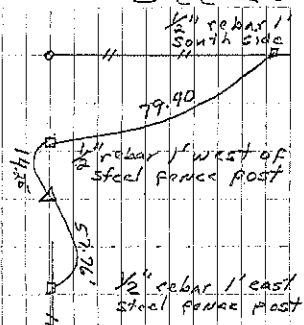 1/2" rebar 1'
South side
79.40
1/2" rebar 1' west of
steel fence post
57.76'
1/2" rebar 1' east
steel fence post